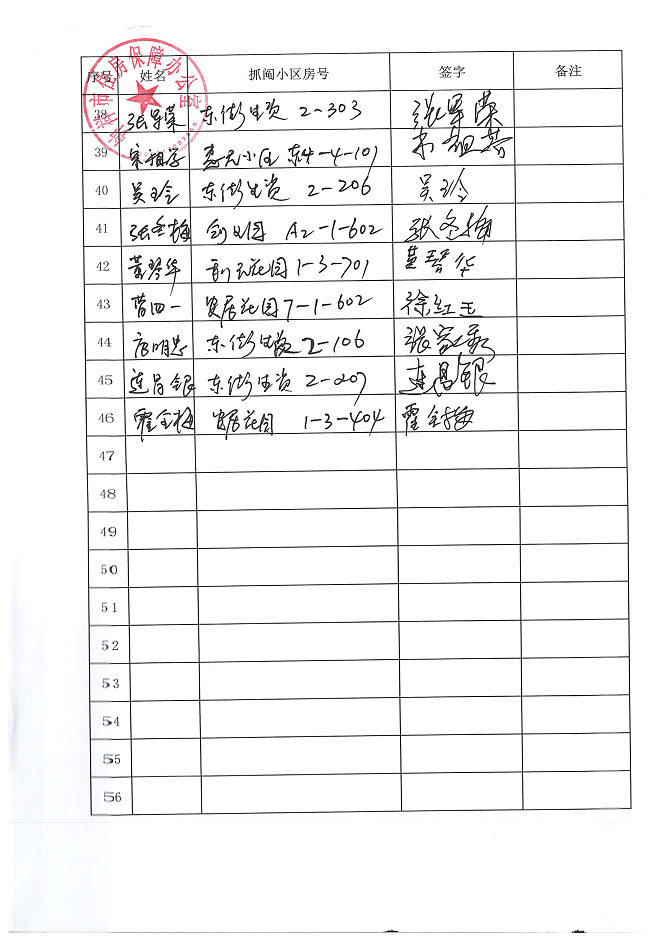 市住房保障办公室
序号 姓名 抓阄小区房号 签字 备注
38 张军荣 东街生资 2-303 张军荣
39 小区 东4-4-101
40 吴玉玲 东街生资 2-206 吴玲
41 张冬梅 A2-1-602 张冬梅
42 黄琴华 花园1-3-701 黄琴华
43 曹四一 安居花园7-1-602 徐红玉
44 东街生资 2-106 张
45 连昌银 东街生资 2-207 连昌银
46 霍全梅 安居花园 1-3-404 霍全梅
47
48
49
50
51
52
53
54
55
56